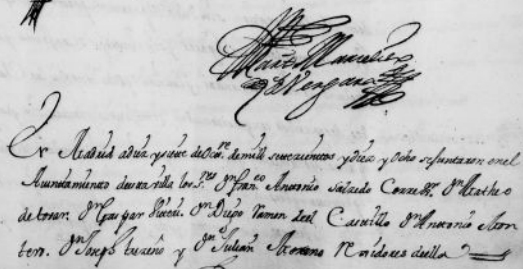 Martin Marcelino
de Vergara
En Madrid a diez y siete de Oct.re de mill setecientos y diez y Ocho se Juntaron en el
Ayuntamiento de esta villa los S.res D.n Fran.co Antonio Salcedo Corre.or D.n Matheo
de tovar. D.n Gaspar D.n Diego Roman del Castillo D.n Antonio Mon
tero. D.n Joseph treviño y D.n Julian Moreno Rexidores della